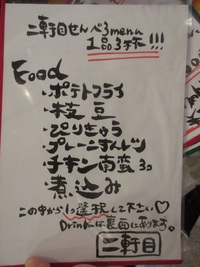 二軒目せんべろmenu
1品3杯!!!
Food
・ポテトフライ
・枝豆
・ぴりきゅう
・プレーンオムレツ
・チキン南蛮3コ
・煮込み
この中から1つ選択して下さい♡
Drinkは裏面にあります。
二軒目